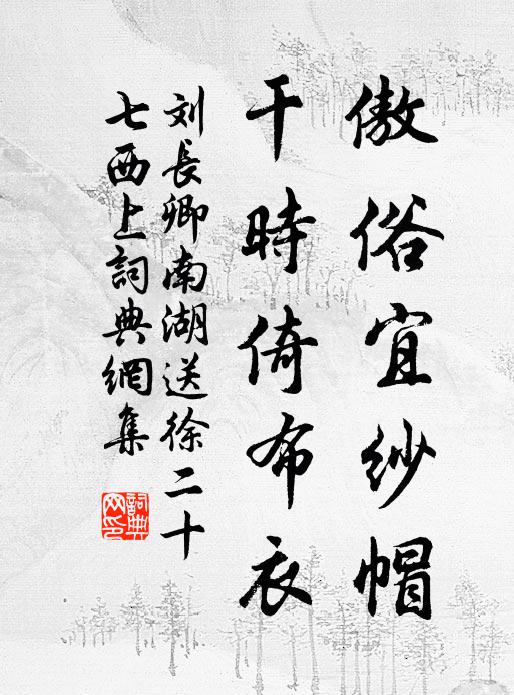 傲俗宜紗帽
干時倚布衣
刘長卿南湖送徐二十
七西上詞典網集
詞典网印